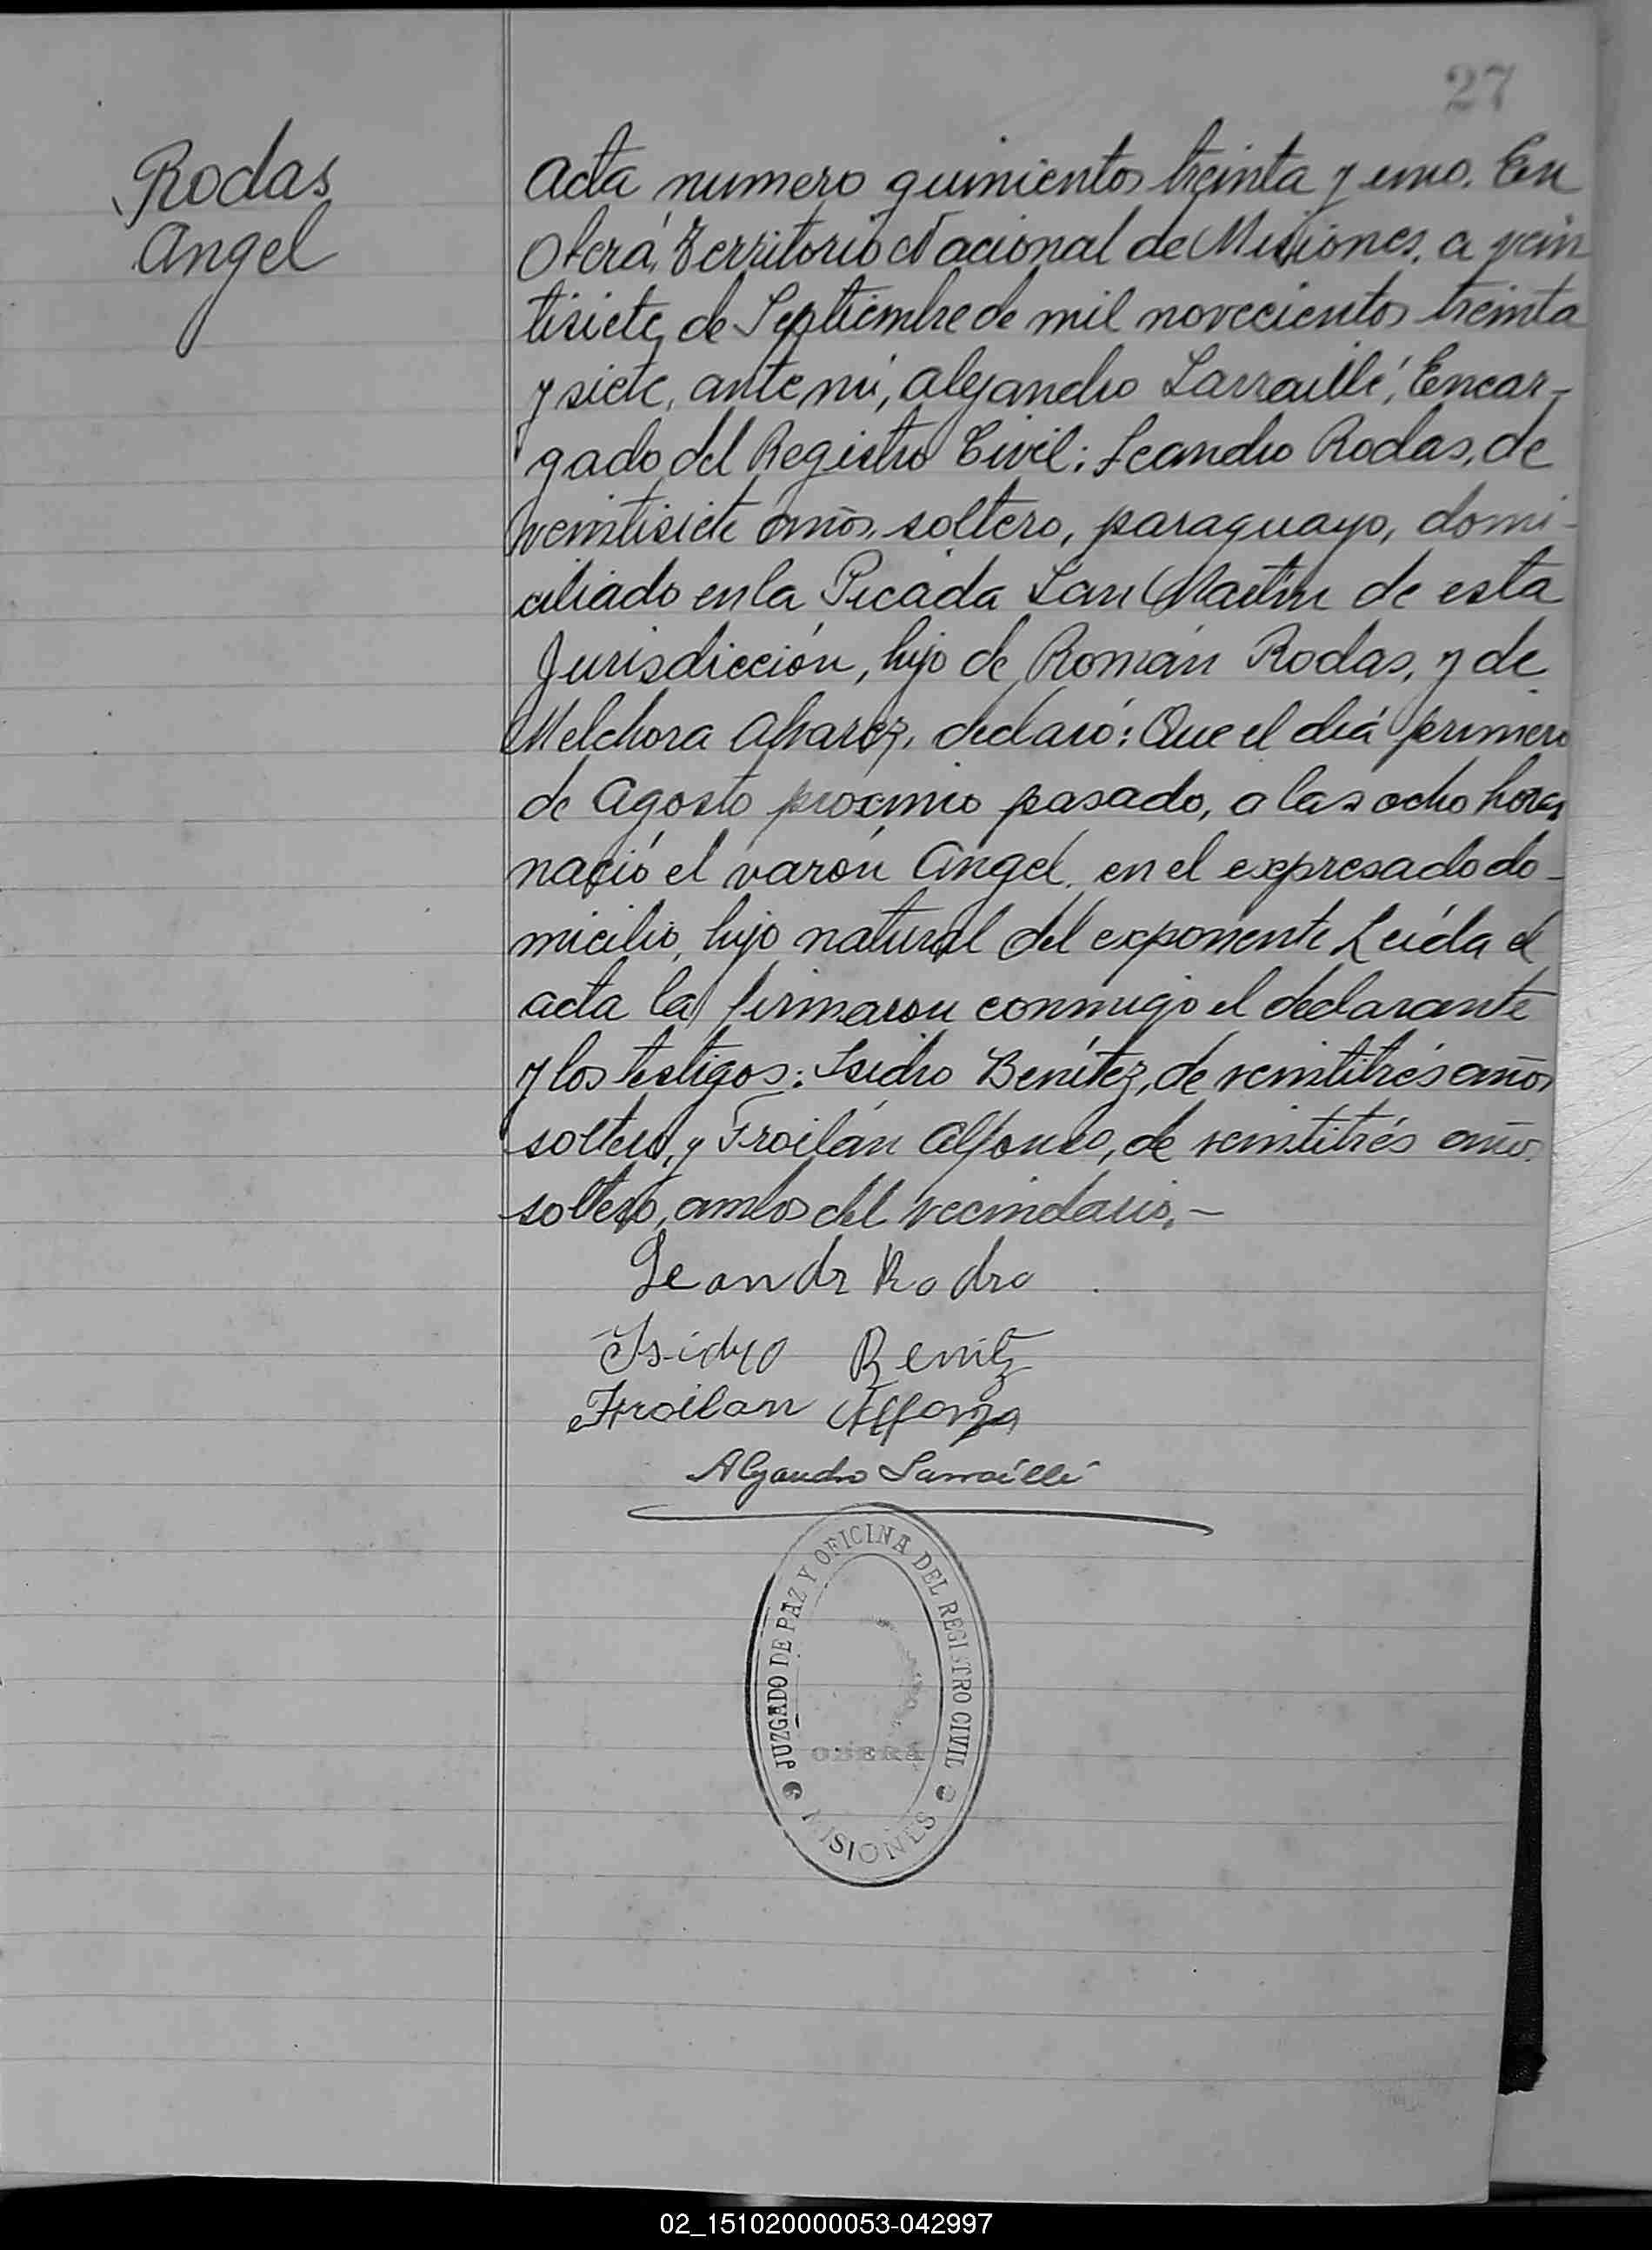 27
Rodas
Angel
Acta numero quinientos treinta y uno. En
Oberá, Territorio Nacional de Misiones, a vein
tisiete de Septiembre de mil novecientos treinta
y siete, ante mí, Alejandro Larraillé, Encar-
gado del Registro Civil: Leandro Rodas, de
veintisiete años, soltero, paraguayo, domi-
ciliado en la Picada San Martin de esta
Jurisdicción, hijo de Román Rodas, y de
Melchora Alvarez, declaró: Que el diá primero
de Agosto proximo pasado, a las ocho horas
nació el varón Angel, en el expresado do-
micilio, hijo natural del exponente Leída el
acta la firmaron conmigo el declarante
y los testigos: Isidro Benítez, de veintitrés años
soltero, y Froilán Alfonso, de veintitrés años
soltero, ambos del vecindario.-
Leandr Rodra
Isidro Benitz
Froilan Alfonzo
Alejandro Larraillé
JUZGADO DE PAZ Y OFICINA DEL REGISTRO CIVIL
OBERÁ
MISIONES
02_151020000053-042997